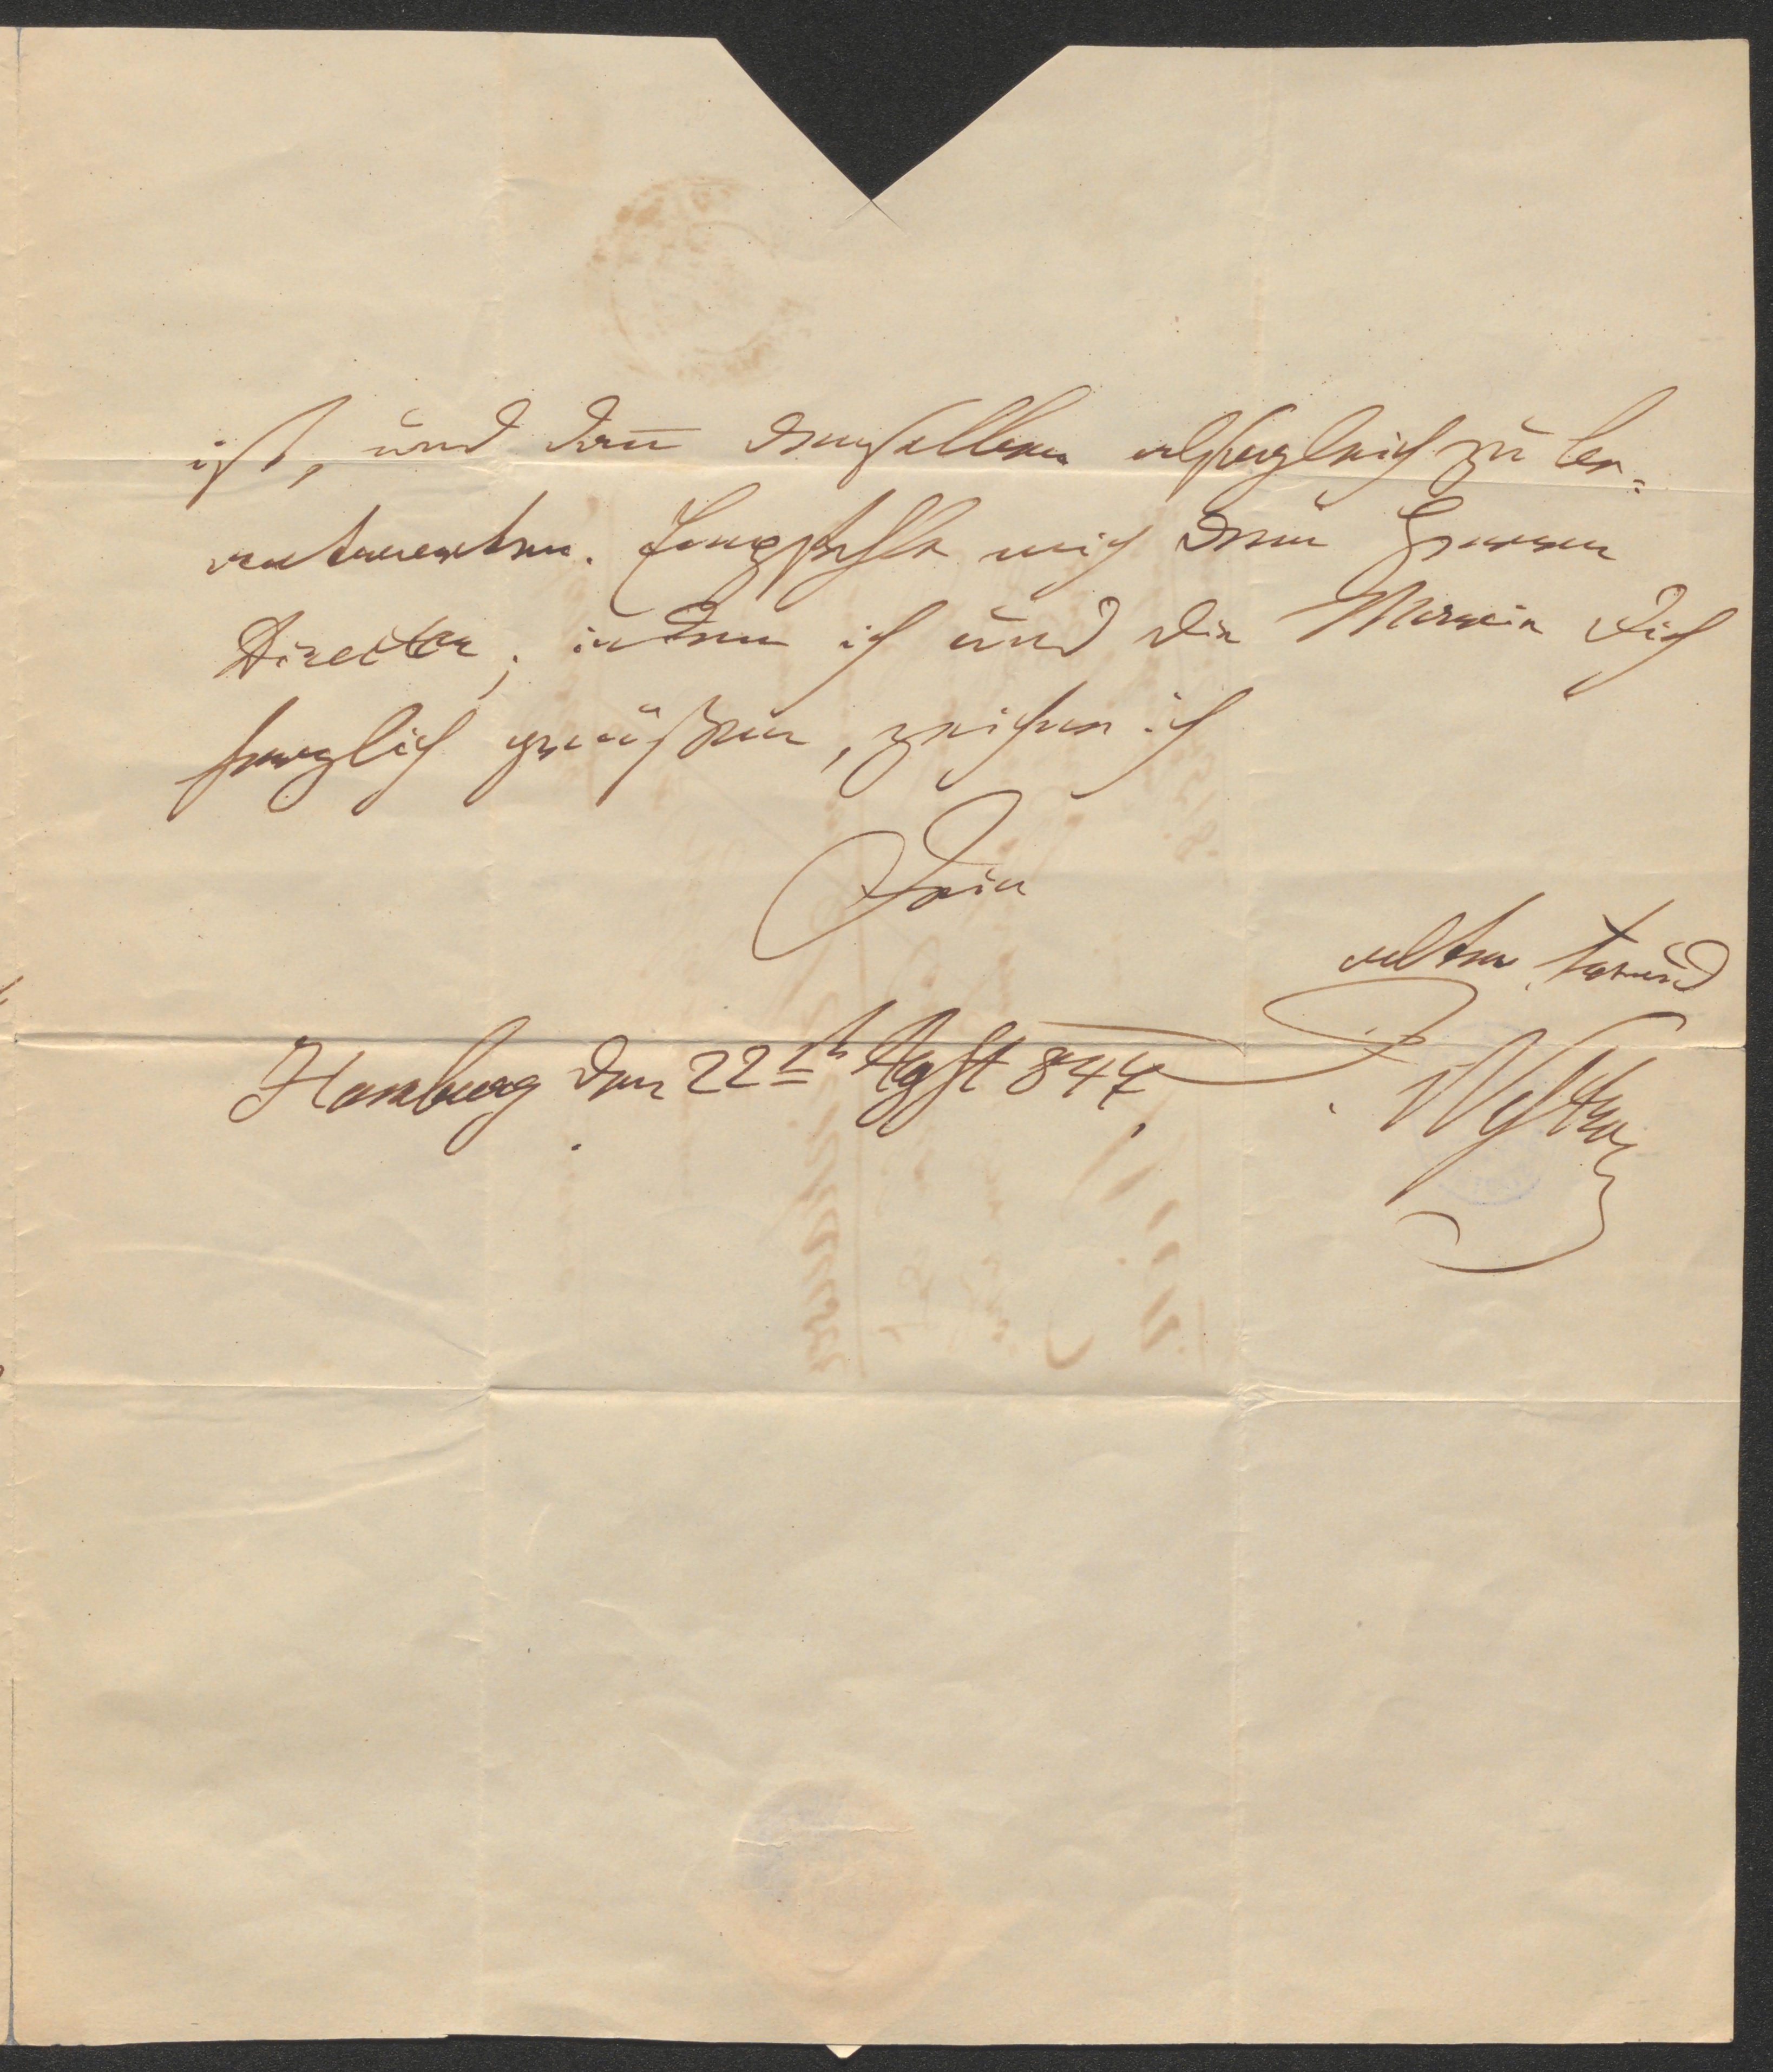 ist, und dañ denselben alsogleich zu be=
antworten. Empfehle mich dem Herrn
Director; indem ich und die Marie Dich
herzlich grüßen, zeichne ich
Dein
alter Freund
Hamburg den 22t Agst 847